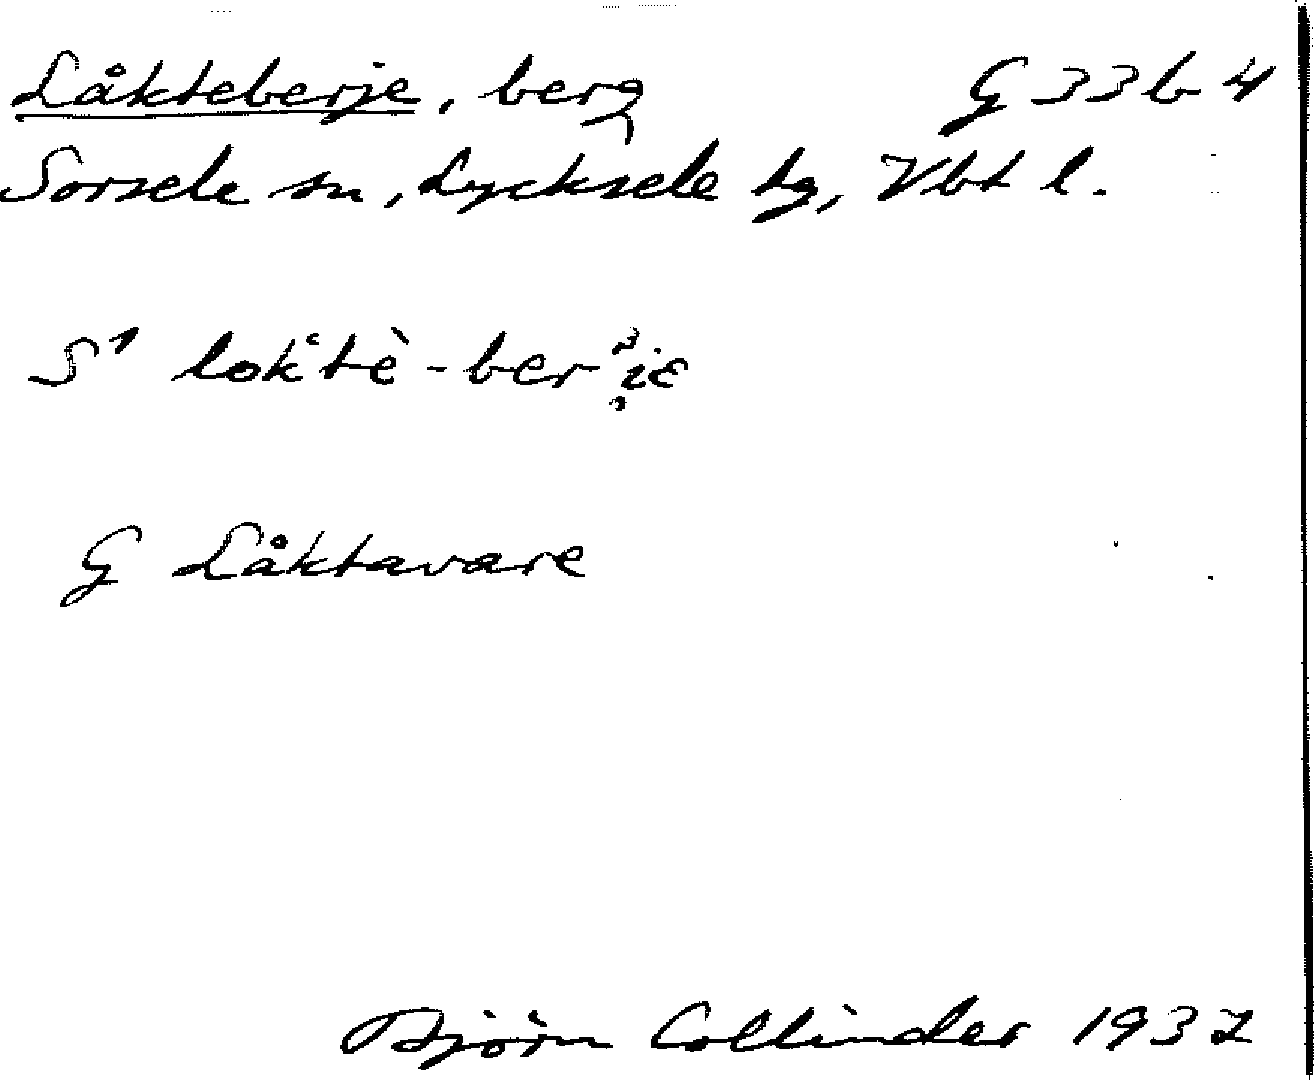 Låkteberje, berg G 33 b 4
Sorsele sn, Lycksele tg, Vbt l.
S¹ lok'tè-ber
G Låktavare
Björn Collinder 1937